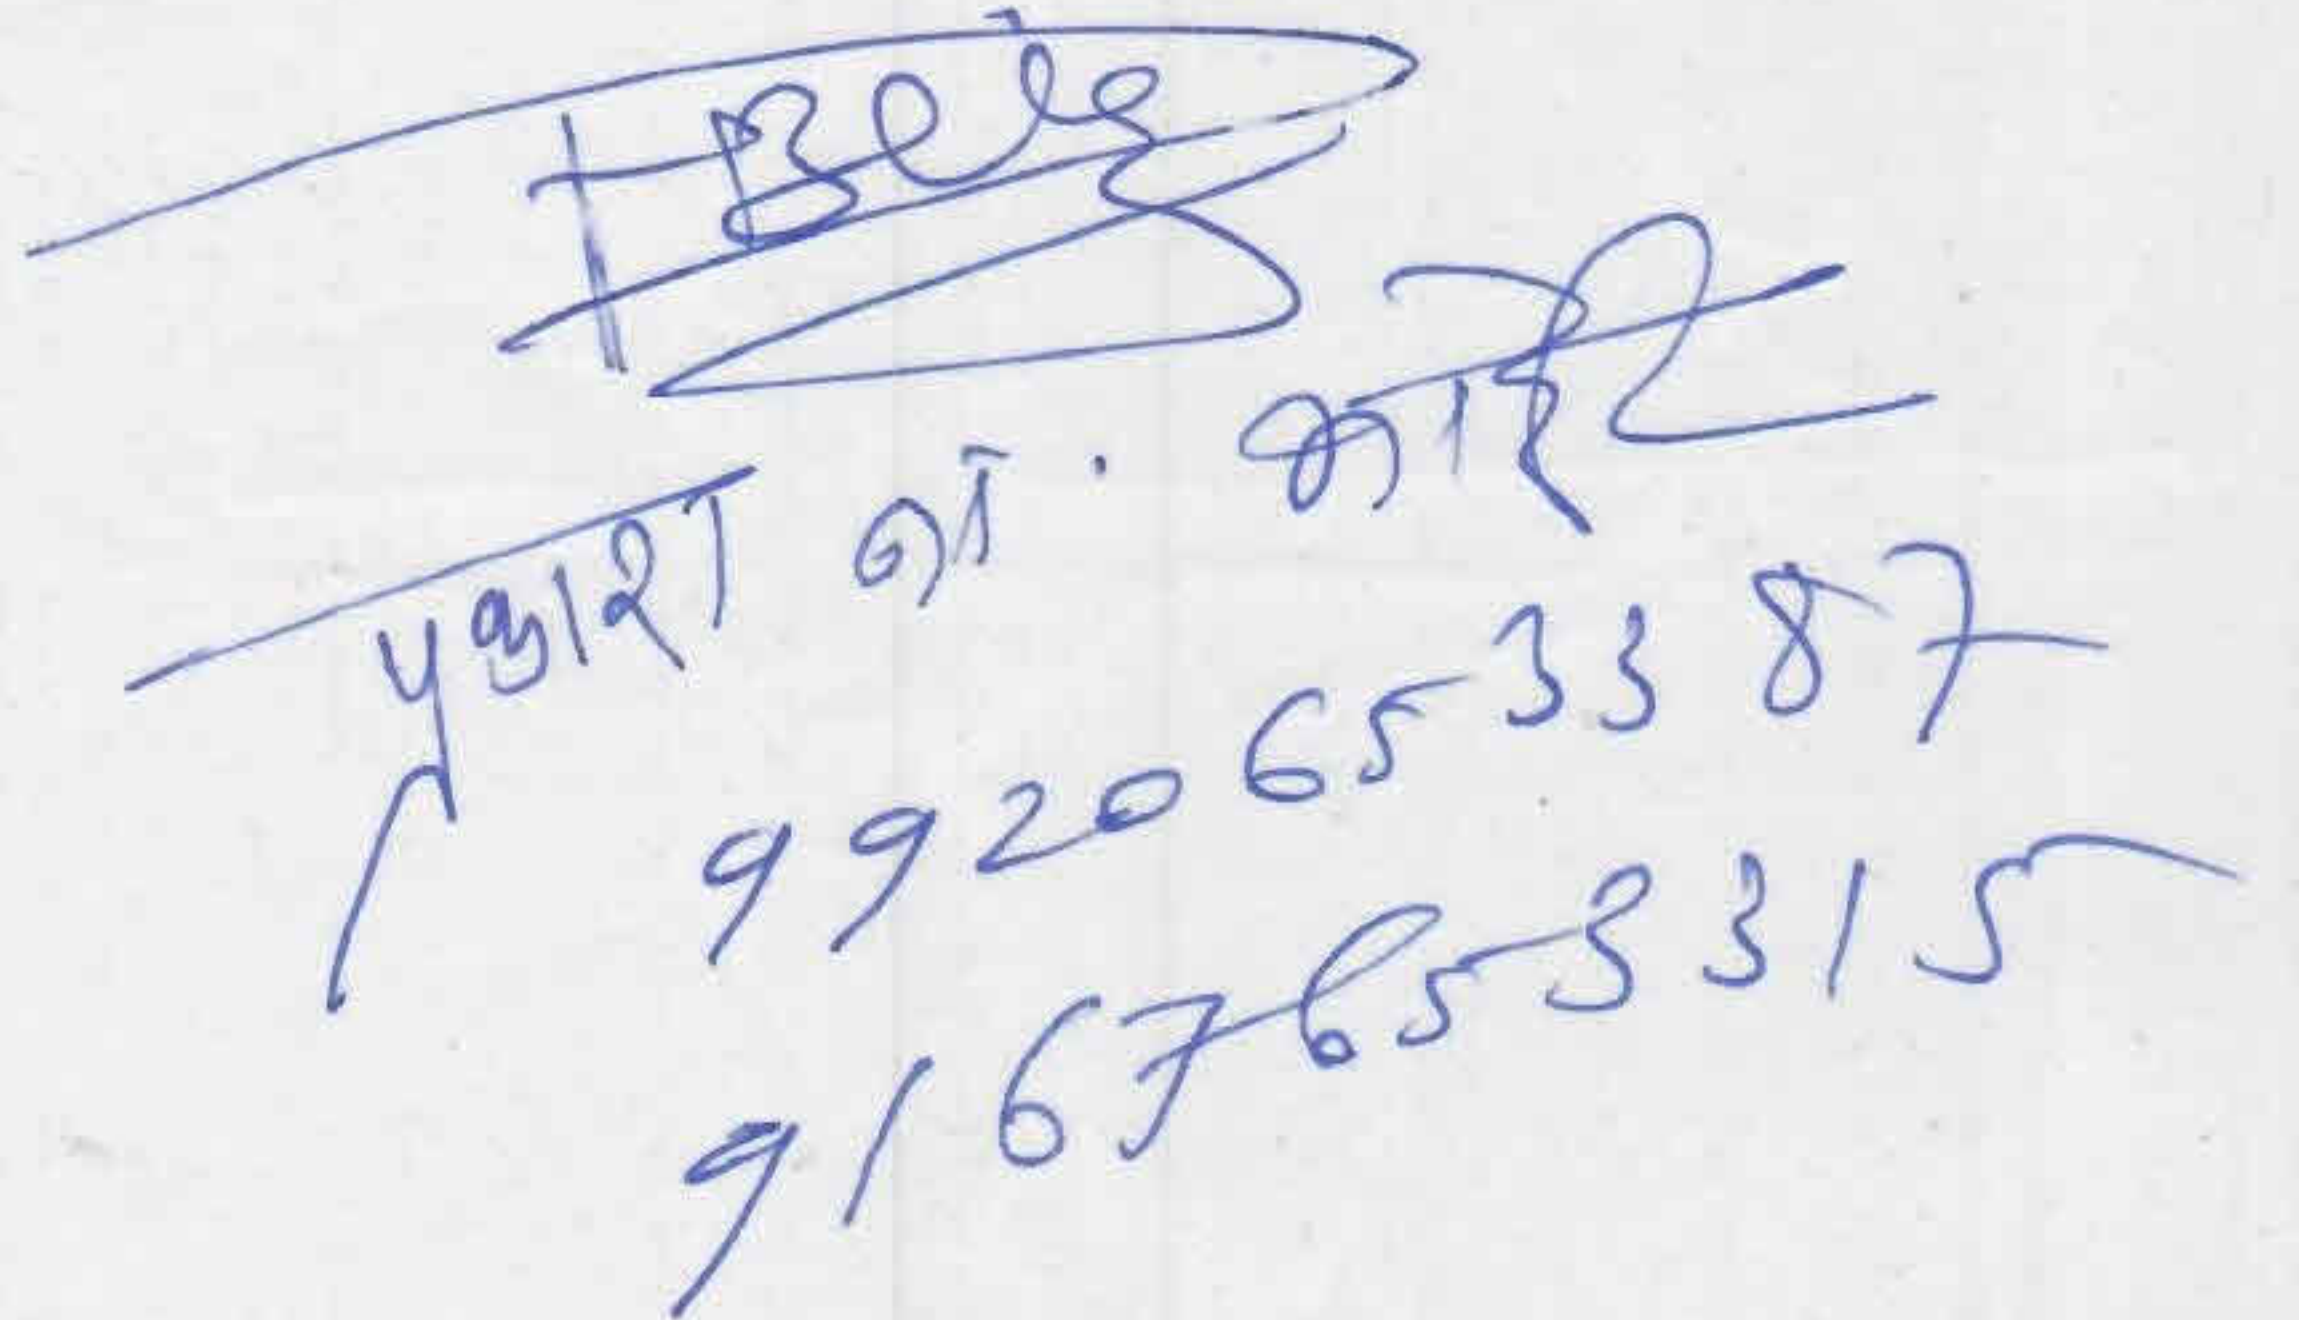 प्रकाश बा. भोईर
9920653387
9167653315